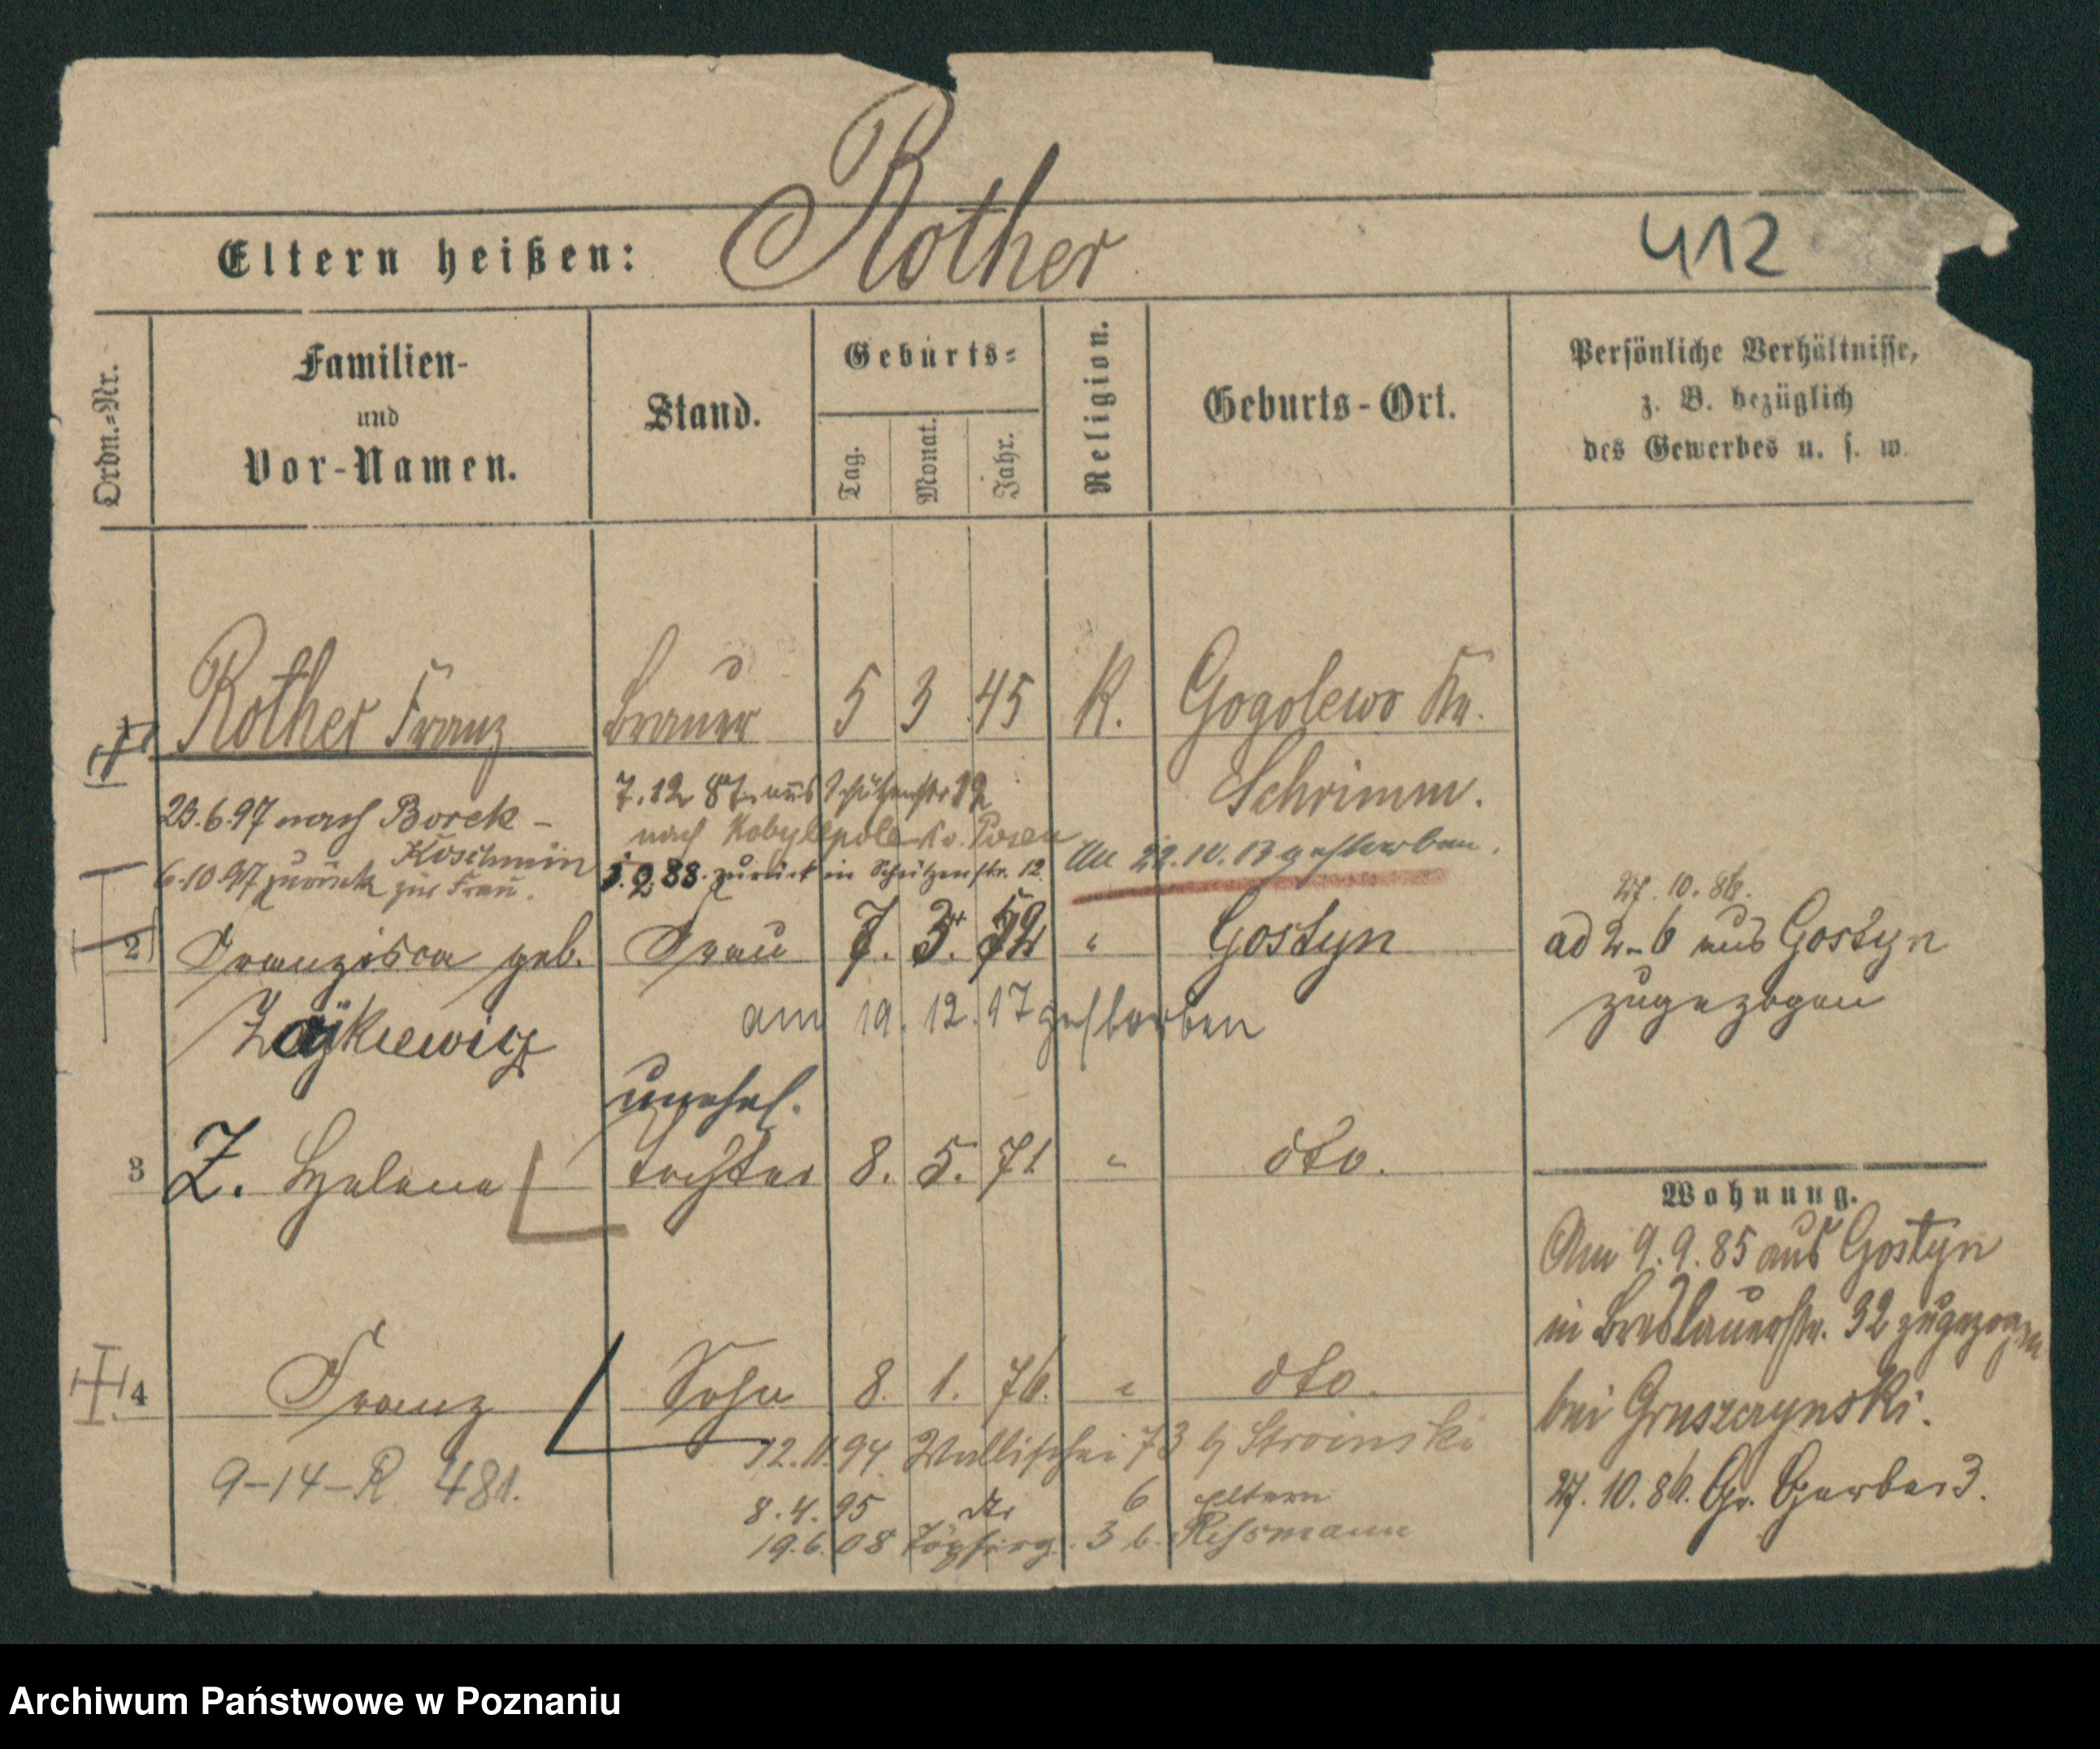 Rother
Eltern heißen:
412
Ordn.=Nr.
Familien-
und
Vor-Namen.
Stand.
Geburts=
Tag.
Monat.
Jahr.
Religion.
Geburts-Ort.
Persönliche Verhältnisse,
z. B. bezüglich
des Gewerbes u. s. w.
Rother Franz Brauer 5 3 45 K. Gogolewo Kr.
Schrimm.
23.6.97 nach Borek -
Koschmin
6.10.97 zurück zur Frau.
7.12 87 aus Schützenstr 12
nach Kobylepole Kr. Posen
88 zurück in Schützenstr. 12.
22.10.13 gestorben.
2 Franzisca geb. Frau 7. 3. 52 " Gostyn
Zajkiewicz
am 19.12.17 gestorben
27.10.86.
ad 2-6 aus Gostyn
zugezogen
unehel.
3 Z. Helene Tochter 8. 5. 71 " dto.
4 Franz Sohn 8. 1. 76. " dto.
9-14-R 481.
12.11.94. Wallischei 73 b/ Stroinski
8.4.95 dto 6 Eltern
19.6.08 Töpferg. 3 b.
Wohnung.
Am 9.9.85 aus Gostyn
in Breslauerstr. 32 zugezogen
bei Gruszczynski.
27.10.86. Gr. Gerber 3.
Archiwum Państwowe w Poznaniu